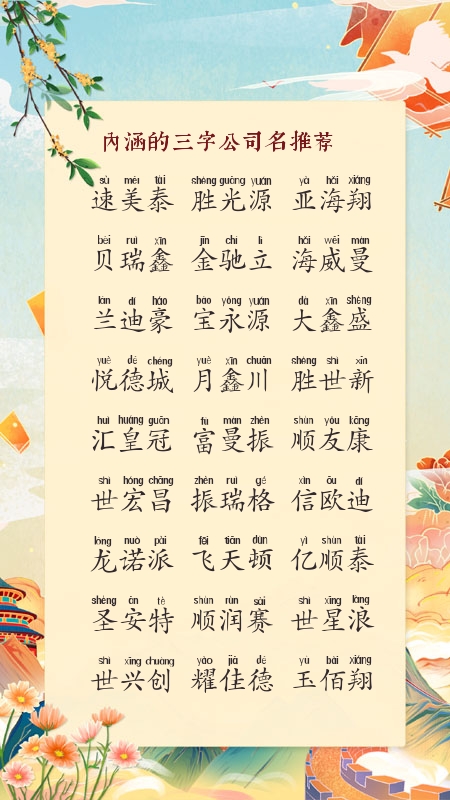 内涵的三字公司名推荐
sù měi tài shèng guāng yuán yà hǎi xiáng
速美泰 胜光源 亚海翔
bèi ruì xīn jīn chí lì hǎi wēi màn
贝瑞鑫 金驰立 海威曼
lán dí háo bǎo yǒng yuán dà xīn shèng
兰迪豪 宝永源 大鑫盛
yuè dé chéng yuè xīn chuān shèng shì xīn
悦德城 月鑫川 胜世新
huì huáng guān fù màn zhèn shùn yǒu kāng
汇皇冠 富曼振 顺友康
shì hóng chāng zhèn ruì gé xìn ōu dí
世宏昌 振瑞格 信欧迪
lóng nuò pài fēi tiān dùn yì shùn tài
龙诺派 飞天顿 亿顺泰
shèng ān tè shùn rùn sài shì xīng làng
圣安特 顺润赛 世星浪
shì xīng chuàng yào jiā dé yù bǎi xiáng
世兴创 耀佳德 玉佰翔